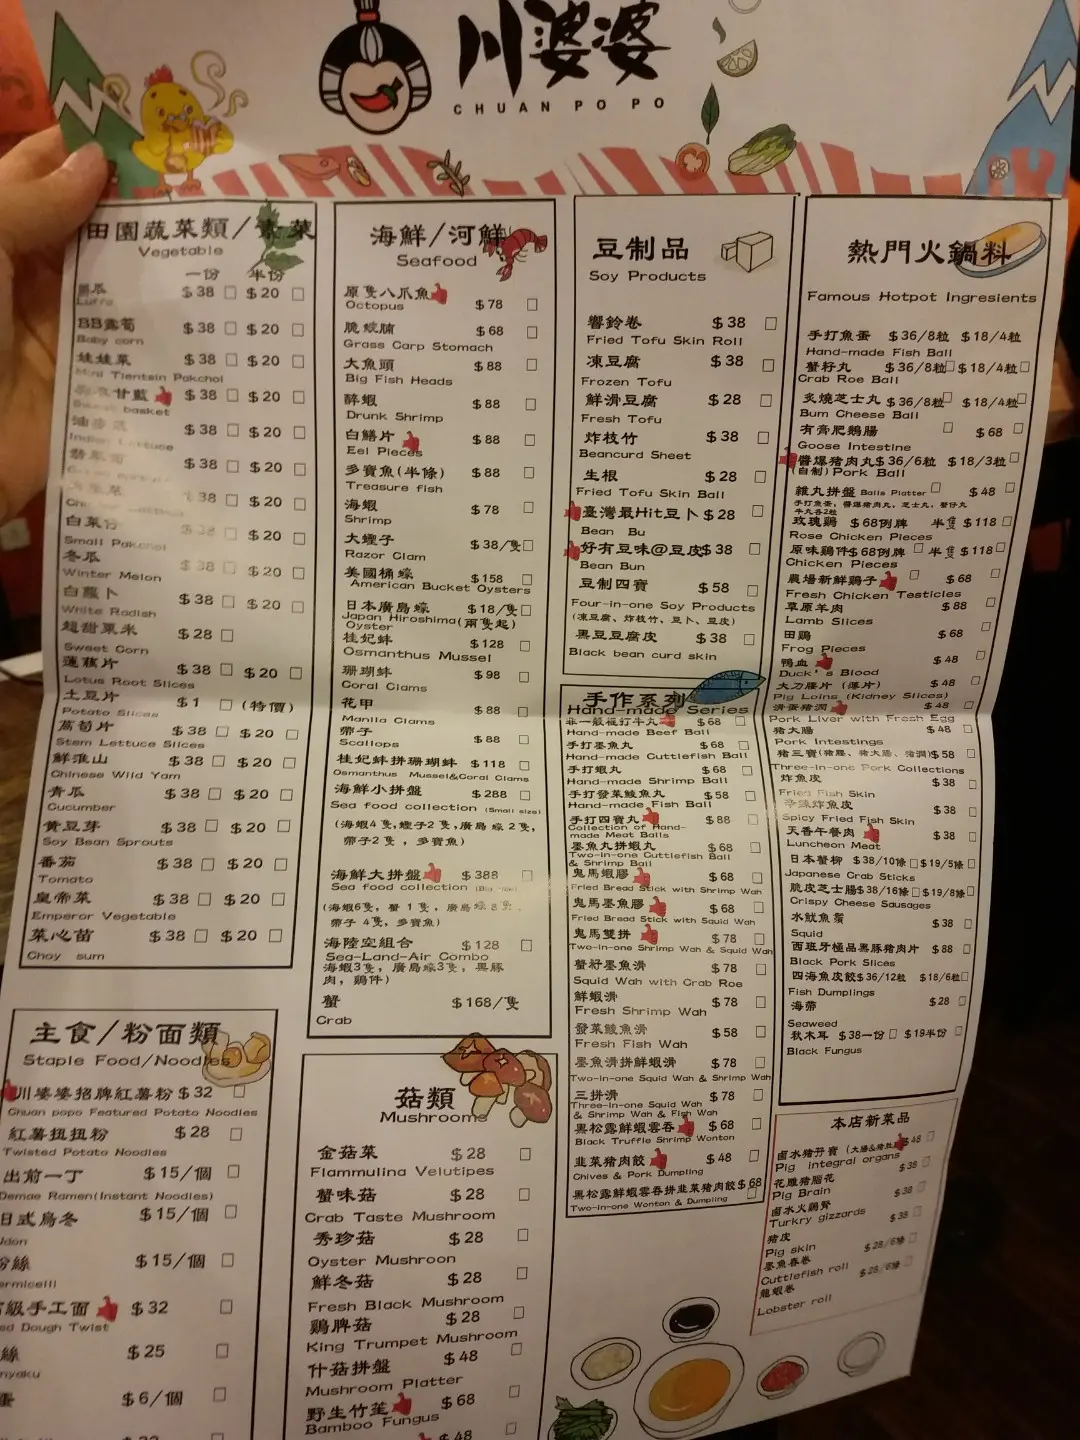 川婆婆
CHUAN PO PO
田園蔬菜類/素菜
Vegetable
一份 半份
$38 □ $20 □
Luffa
BB露筍 $38 □ $20 □
Baby corn
娃娃菜 $38 □ $20 □
Mini Tientsin Pakchoi
甘藍 $38 □ $20 □
Sweet basket
$38 □ $20 □
Indian Lettuce
$38 □ $20 □
$38 □ $20 □
白菜仔 $38 □ $20 □
Small Pakchoi
冬瓜 $38 □ $20 □
Winter Melon
白蘿卜 $38 □ $20 □
White Radish
超甜粟米 $28 □
Sweet Corn
蓮藕片 $38 □ $20 □
Lotus Root Slices
土豆片 $1 □ (特價)
Potato Slices
萵荀片 $38 □ $20 □
Stem Lettuce Slices
鮮淮山 $38 □ $20 □
Chinese Wild Yam
青瓜 $38 □ $20 □
Cucumber
黃豆芽 $38 □ $20 □
Soy Bean Sprouts
番茄 $38 □ $20 □
Tomato
皇帝菜 $38 □ $20 □
Emperor Vegetable
菜心苗 $38 □ $20 □
Choy sum
主食/粉面類
Staple Food/Noodles
川婆婆招牌紅薯粉 $32 □
Chuan popo Featured Potato Noodles
紅薯扭扭粉 $28 □
Twisted Potato Noodles
出前一丁 $15/個 □
Demae Ramen(Instant Noodles)
日式烏冬 $15/個 □
Udon
粉絲 $15/個 □
ermicelli
級手工面 $32 □
Dough Twist
絲 $25 □
nyaku
蛋 $6/個 □
海鮮/河鮮
Seafood
原隻八爪魚 $78 □
Octopus
脆鯇腩 $68 □
Grass Carp Stomach
大魚頭 $88 □
Big Fish Heads
醉蝦 $88 □
Drunk Shrimp
白鱔片 $88 □
Eel Pieces
多寶魚(半條) $88 □
Treasure fish
海蝦 $78 □
Shrimp
大蟶子 $38/隻 □
Razor Clam
美國桶蠔 $158 □
American Bucket Oysters
日本廣島蠔 $18/隻 □
Japan Hiroshima(兩隻起)
Oyster
桂妃蚌 $128 □
Osmanthus Mussel
珊瑚蚌 $98 □
Coral Clams
花甲 $88 □
Manila Clams
帶子 $88 □
Scallops
桂妃蚌拼珊瑚蚌 $118 □
Osmanthus Mussel&Coral Clams
海鮮小拼盤 $288 □
Sea food collection (Small size)
(海蝦4隻,蟶子2隻,廣島蠔2隻,
帶子2隻,多寶魚)
海鮮大拼盤 $388 □
Sea food collection
(海蝦6隻,蟹1隻,廣島蠔
帶子4隻,多寶魚)
海陸空組合 $128 □
Sea-Land-Air Combo
海蝦3隻,廣島蠔3隻,黑豚
肉,鷄件)
蟹 $168/隻
Crab
菇類
Mushrooms
金菇菜 $28 □
Flammulina Velutipes
蟹味菇 $28 □
Crab Taste Mushroom
秀珍菇 $28 □
Oyster Mushroon
鮮冬菇 $28 □
Fresh Black Mushroom
鷄髀菇 $28 □
King Trumpet Mushroom
什菇拼盤 $48 □
Mushroom Platter
野生竹笙 $68 □
Bamboo Fungus
$48 □
豆制品
Soy Products
響鈴卷 $38 □
Fried Tofu Skin Roll
凍豆腐 $38 □
Frozen Tofu
鮮滑豆腐 $28 □
Fresh Tofu
炸枝竹 $38 □
Beancurd Sheet
生根 $28 □
Fried Tofu Skin Ball
臺灣最Hit豆卜 $28 □
Bean Bu
好有豆味@豆皮 $38 □
Bean Bun
豆制四寶 $58 □
Four-in-one Soy Products
(凍豆腐、炸枝竹、豆卜、豆皮)
黑豆豆腐皮 $38 □
Black bean curd skin
手作系列
Hand-made Series
非一般手打牛丸 $68 □
Hand-made Beef Ball
手打墨魚丸 $68 □
Hand-made Cuttlefish Ball
手打蝦丸 $68 □
Hand-made Shrimp Ball
手打發菜鯪魚丸 $58 □
Hand-made Fish Ball
手打四寶丸 $88 □
Collection of Hand-
made Meat Balls
墨魚丸拼蝦丸 $68 □
Two-in-one Cuttlefish Ball
& Shrimp Ball
鬼馬蝦膠 $68 □
Fried Bread Stick with Shrimp Wah
鬼馬墨魚膠 $68 □
Fried Bread Stick with Squid Wah
鬼馬雙拼 $78 □
Two-in-one Shrimp Wah & Squid Wah
蟹籽墨魚滑 $78 □
Squid Wah with Crab Roe
鮮蝦滑 $78 □
Fresh Shrimp Wah
發菜鯪魚滑 $58 □
Fresh Fish Wah
墨魚滑拼鮮蝦滑 $78 □
Two-in-one Squid Wah & Shrimp Wah
三拼滑 $78 □
Three-in-one Squid Wah
& Shrimp Wah & Fish Wah
黑松露鮮蝦雲吞 $68 □
Black Truffle Shrimp Wonton
韭菜猪肉餃 $48 □
Chives & Pork Dumpling
黑松露鮮蝦雲吞拼韭菜猪肉餃 $68
Two-in-one Wonton & Dumpling □
熱門火鍋料
Famous Hotpot Ingresients
手打魚蛋 $36/8粒 $18/4粒
Hand-made Fish Ball
蟹籽丸 $36/8粒 □ $18/4粒 □
Crab Roe Ball
炙燒芝士丸 $36/8粒 □ $18/4粒 □
Burn Cheese Ball
有膏肥鵝腸 □ $68 □
Goose Intestine
醬爆猪肉丸 $36/6粒 $18/3粒 □
(自制) Pork Ball
雜丸拼盤 Balls Platter □ $48 □
手打魚蛋,醬爆猪肉丸,芝士丸,蟹仔丸
牛丸各2粒
玫瑰鷄 $68例牌 半隻 $118 □
Chicken Pieces
原味鷄件 $68例牌 □ 半隻 $118 □
Chicken Pieces
農場新鮮鷄子 □ $68 □
Fresh Chicken Testicles
草原羊肉 $88 □
Lamb Slices
田鷄 $68 □
Frog Pieces
鴨血 $48 □
Duck's Blood
大刀腰片(薄片) $48 □
Pig Loins (Kidney Slices)
滑蛋猪潤 $48 □
Pork Liver with Fresh Egg
猪大腸 $48 □
Pork Intestings
猪三寶(猪腰、猪大腸、猪潤) $58 □
Three-in-one Pork Collections
炸魚皮 $38 □
Fried Fish Skin
辛辣炸魚皮 $38 □
Spicy Fried Fish Skin
天香午餐肉 $38 □
Luncheon Meat
日本蟹柳 $38/10條 □ $19/5條 □
Japanese Crab Sticks
脆皮芝士腸 $38/16條 □ $19/8條 □
Crispy Cheese Sausages
水魷魚鬚 $38 □
Squid
西班牙極品黑豚猪肉片 $88 □
Black Pork Slices
四海魚皮餃 $36/12粒 $18/6粒 □
Fish Dumplings
海帶 $28 □
Seaweed
秋木耳 $38一份 □ $19半份 □
Black Fungus
本店新菜品
鹵水猪孖寶 $48 □
Pig integral organs
花雕猪腦花 $38 □
Pig Brain
鹵水火鷄腎 $38 □
Turkry gizzards
猪皮 $38 □
Pig skin
墨魚春卷 $28/6條 □
Cuttlefish roll
龍蝦卷 $28/6條 □
Lobster roll